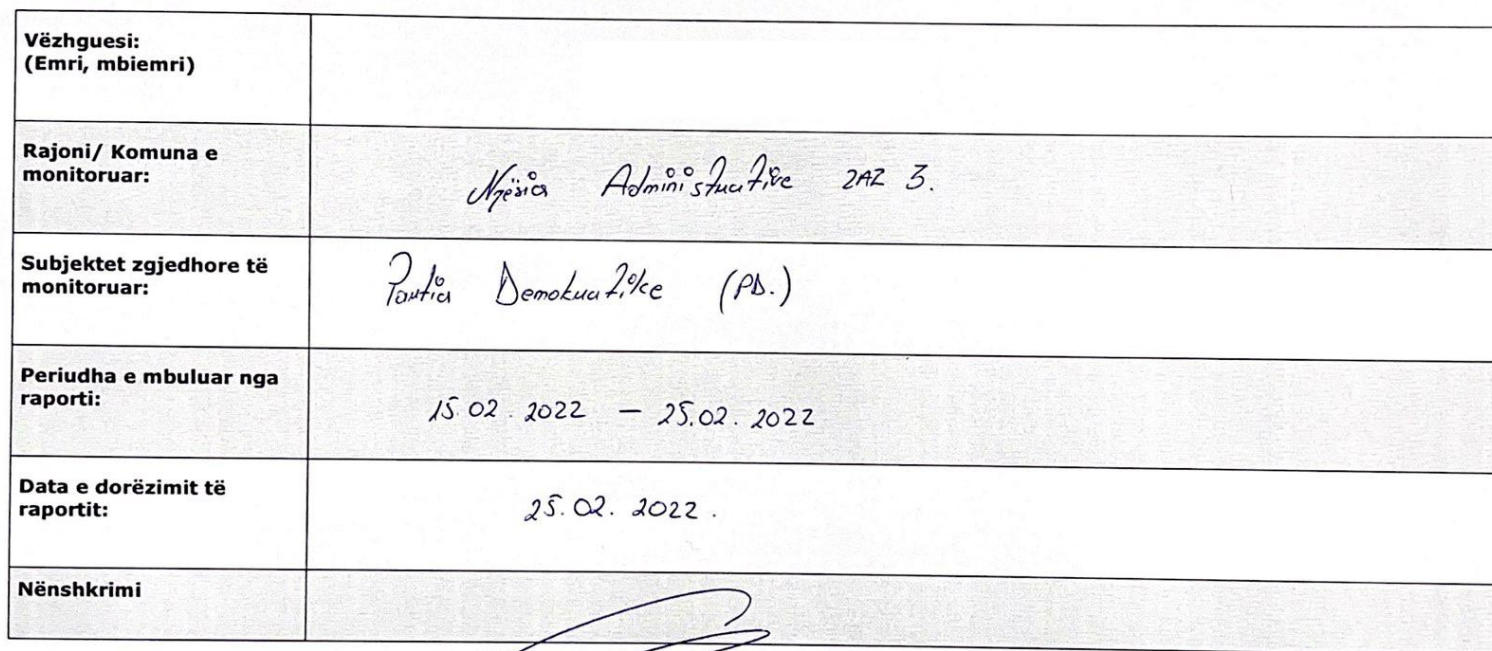 Vëzhguesi:
(Emri, mbiemri)
Rajoni/ Komuna e
monitoruar:
Njësia Administrative ZAZ 3.
Subjektet zgjedhore të
monitoruar:
Partia Demokratike (PD.)
Periudha e mbuluar nga
raporti:
15.02.2022 – 25.02.2022
Data e dorëzimit të
raportit:
25.02.2022.
Nënshkrimi